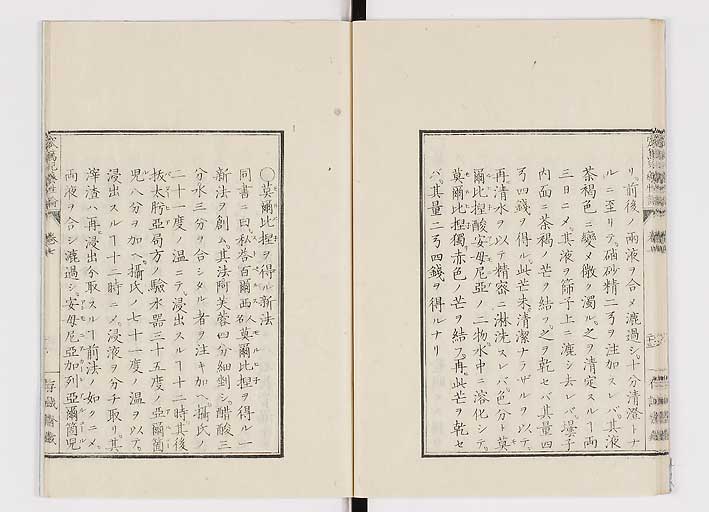 リ。前後ノ兩液ヲ合メ漉過シ。十分清澄トナ
ルニ至リテ。硇砂精二ヲ注加スレバ。其液
茶褐色ニ變メ微ク濁ル。之ヲ清定スルヿ兩
三日ニメ。其液ヲ篩子上ニ漉シ去レバ。壜子
内面ニ茶褐ノ芒ヲ結フ。之ヲ乾セバ其量四
ヲ得ル。此芒未清潔ナラザルヲ以テ。
再清水ヲ以テ精密ニ淋洗スレバ。色分ト莫
爾比捏酸安母尼亞ノ二物水中ニ溶化シテ。
莫爾比捏獨赤色ノ芒ヲ結フ。再此芒ヲ乾セ
バ。其量二四錢ヲ得ルナリ
○莫爾比捏ヲ得ル新法
同書ニ曰。私荅百爾西人莫爾比捏ヲ得ル一
新法ヲ創ム。其法阿芙蓉四分細剉シ。醋酸三
分水三分ヲ合シタル者ヲ注キ加ヘ。攝氏ノ
二十一度ノ温ニテ。浸出スルヿ十二時。其後
抜太肹亞局方ノ驗水器三十五度ノ亞爾箇
兒八分ヲ加ヘ。攝氏ノ七十一度ノ温ヲ以テ。
浸出スルヿ十二時ニメ。浸液ヲ分チ取リ。其
滓渣ハ再。浸出分取スルヿ前法ノ如クニメ。
兩液ヲ合シ漉過シ。安母尼亞加列亞爾箇兒